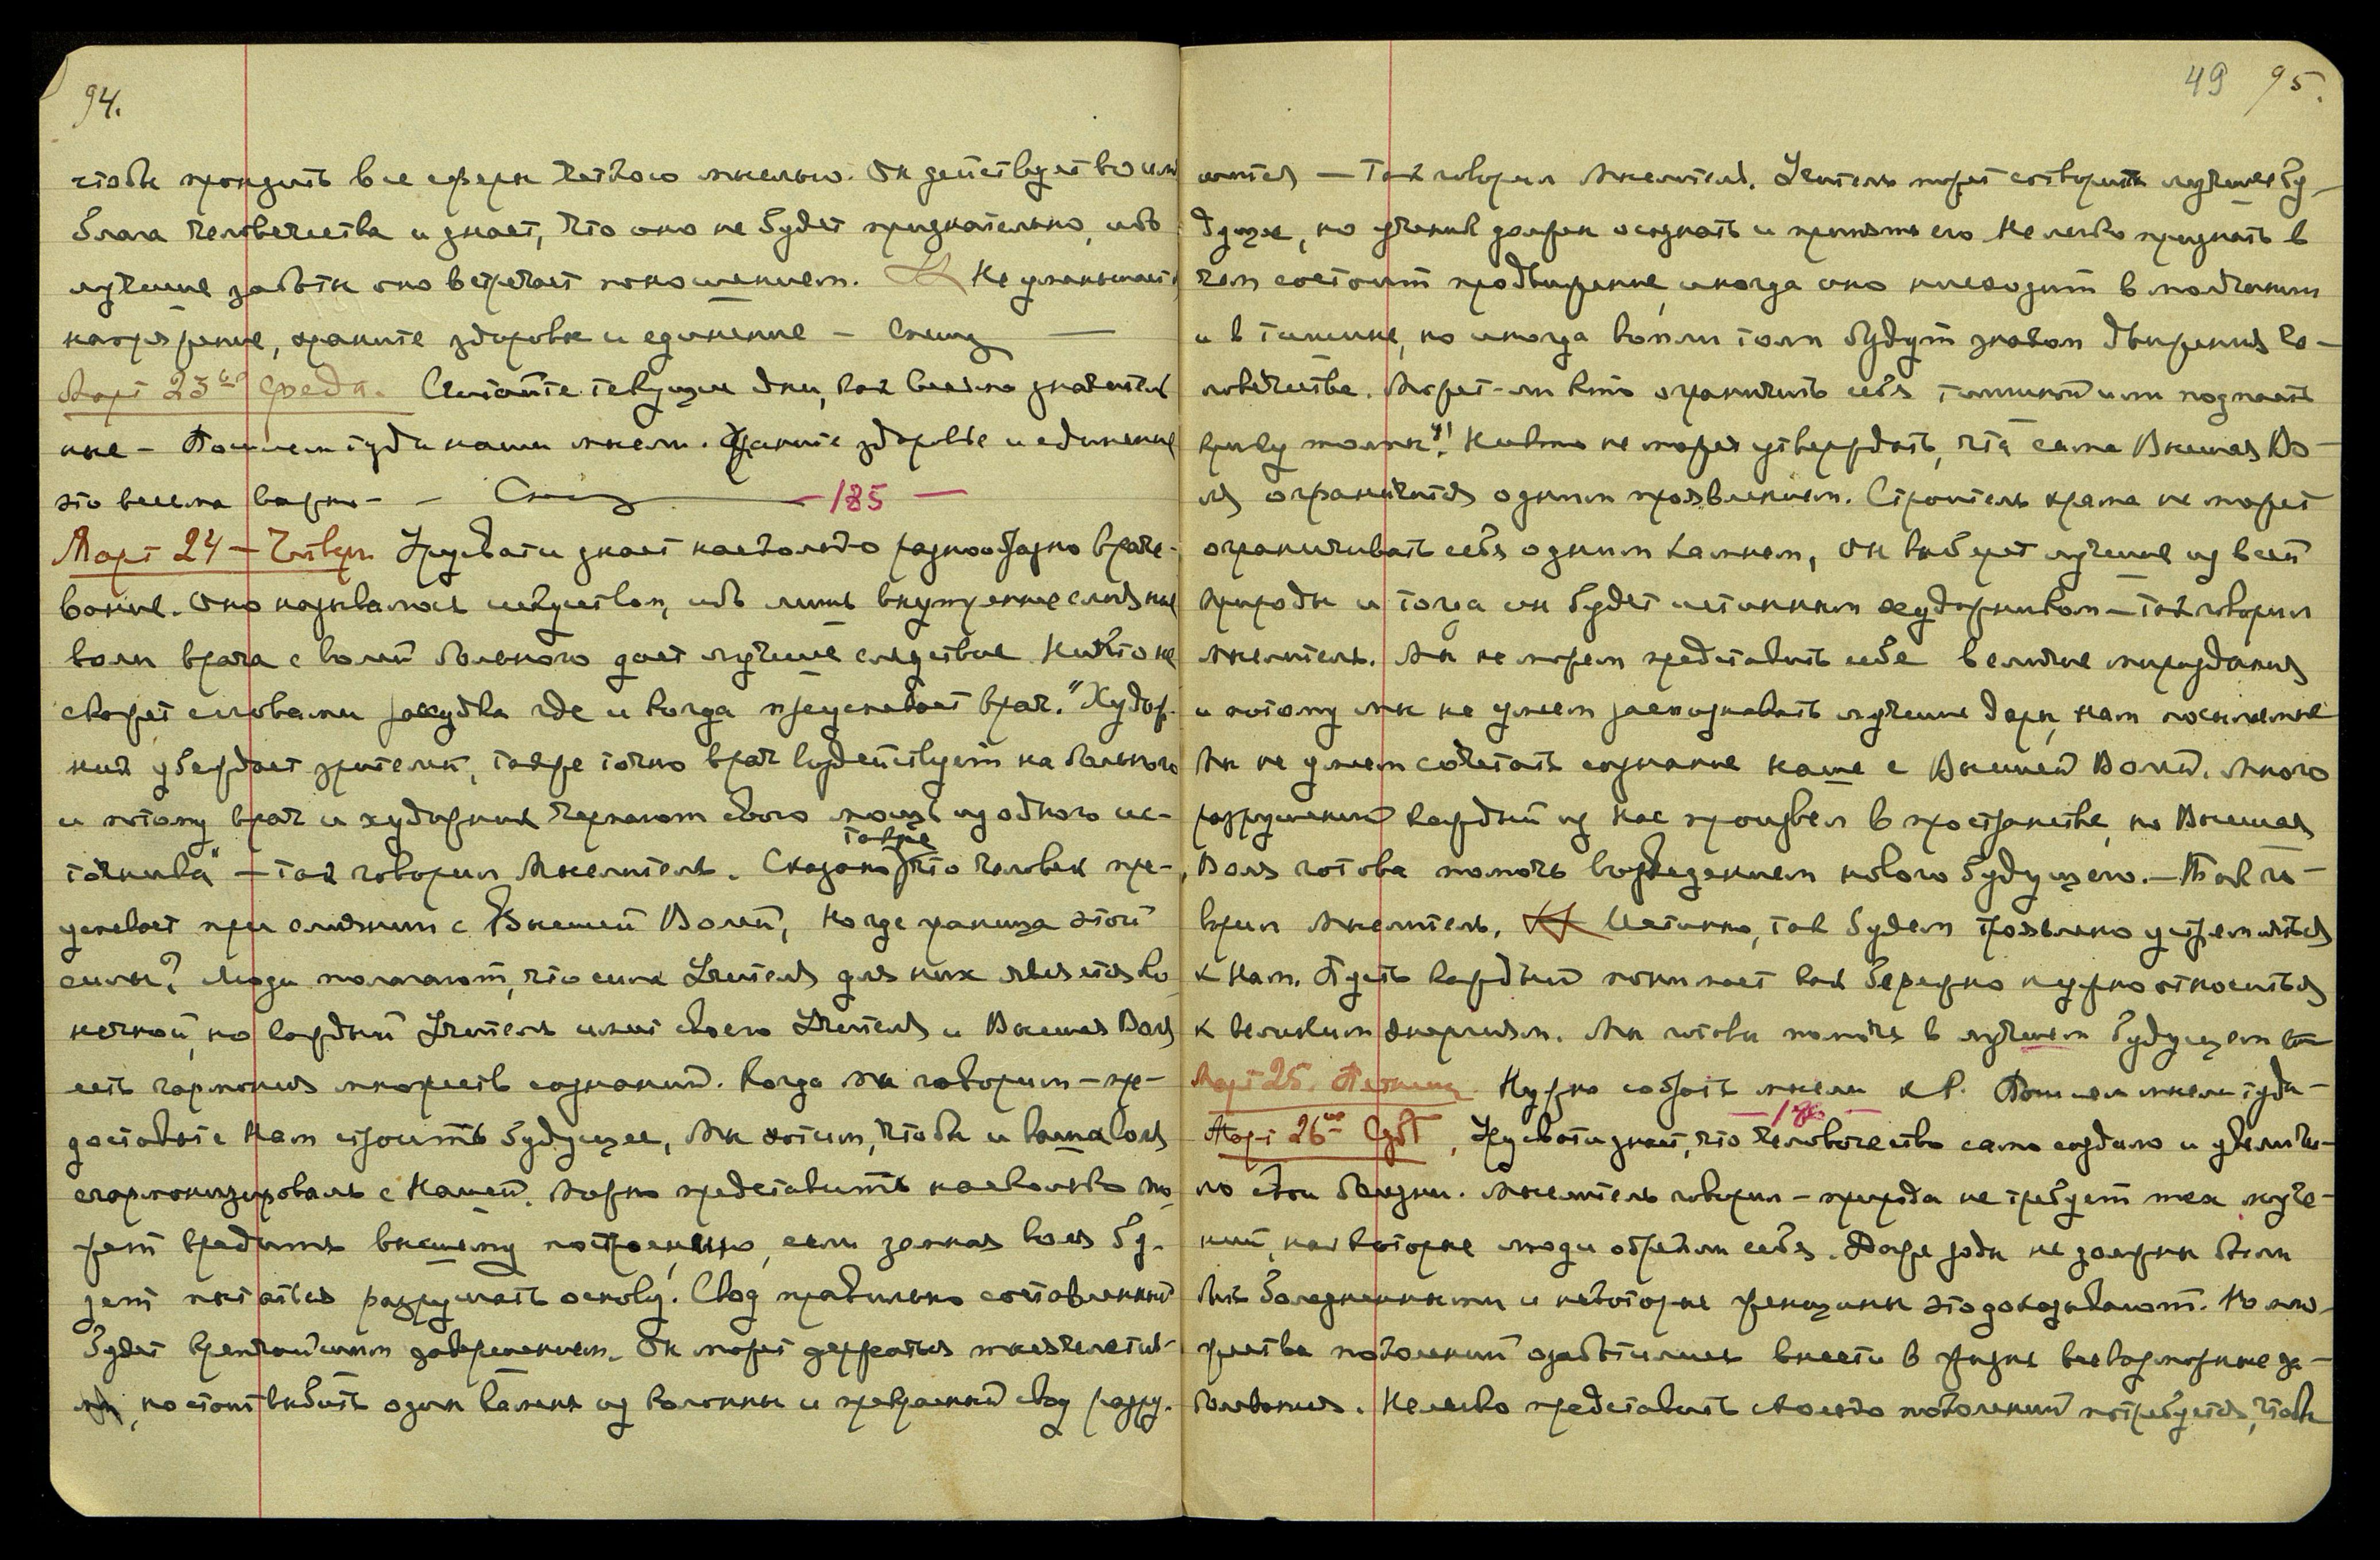 94.
чтобы пронзить все сферы четкою мыслью. Он действует во имя
блага человечества и знает, что оно не будет признательно, ибо
лучшие заботы оно встречает поношением. Не уменьшайте
напряжение, храните здоровье и единение – Спешу —
Март 23го Среда. Считайте текущие дни, как весьма значитель
ные – Пошлем туда наши мысли. Храните здоровье и единение
это весьма важно – – Спешу — 185 —
Март 24 – Четверг Урусвати знает насколько разнообразно враче-
вание. Оно называлось искусством, ибо лишь внутреннее слияние
воли врача с волей больного дает лучшие следствие Никто не
скажет словами рассудка где и когда преуспевает врач. "Худож-
ник убеждает зрителей, также точно врач воздействует на больного
и потому врач и художник черпают свою мощь из одного ис-
также
точника" – так говорил Мыслитель. Сказано что человек пре-
успевает при слиянии с Высшей Волей, Но где граница этой
силы? Люди полагают, что сила Учителя для них явлется ко
нечной, но каждый Учитель имеет своего Учителя и Высшая Воля
есть гармония множеств сознаний. Когда Мы говорим – пре-
доставьте Нам строить будущее, Мы хотим, чтобы и ваша воля
сгармонизировалась с Нашей. Можно представить насколько мо-
жет вредить высшему построению, если земная воля бу-
дет пытаться разрушать основу! Свод правильно составленный
будет крепчайшим завершением. Он может держаться тысячелетия-
ми, но стоит выбить один камень из колонны и прекрасный свод разру-
49 95.
шится – Так говорил Мыслитель. Учитель может сотворить лучшее бу-
дущее, но ученик должен осознать и принять его Нелегко признать в
чем состоит продвижение, иногда оно нисходит в молчании
и в тишине, но иногда вопли толп будут знаком движения че-
ловечества. Может-ли кто ограничить себя тишиной или познать
правду толпы"! Никто не может утвердить, что сама Высшая Во-
ля ограничится одним проявлением. Строитель храма не может
ограничивать себя одним камнем, он выберет лучшие из всей
природы и тогда он будет истинным художником – так говорил
Мыслитель. Мы не можем представить себе величие мироздания
и потому мы не умеем распознавать лучшие дары, нам посылаемые
Мы не умеем сочетать сознание наше с Высшей Волей. Много
разрушений каждый из нас произвел в пространстве, но Высшая
Воля готова помочь возведением нового будущего. – Так го-
ворил Мыслитель. Истинно, так будем проявлено устремляться
к Нам. Пусть каждый понимает как бережно нужно относиться
к великим энергиям. Мы готовы помочь в лучшем будущем
Март 25. Пятница Нужно собрать мысли к В. Пошлем мысли туда –
— 186 —
Март 26го Субб. Урусвати знает, что человечество само создало и увеличи-
ло свои болезни. Мыслитель говорил – природа не требует тех муче-
ний, на которые люди обрекли себя. Даже роды не должны быть
быть болезненными и некоторые женщины это доказывают. Но мно-
жества поколений озаботились внести в жизнь всевозможные за-
болевания. Нелегко представить сколько поколений потребуется, чтобы